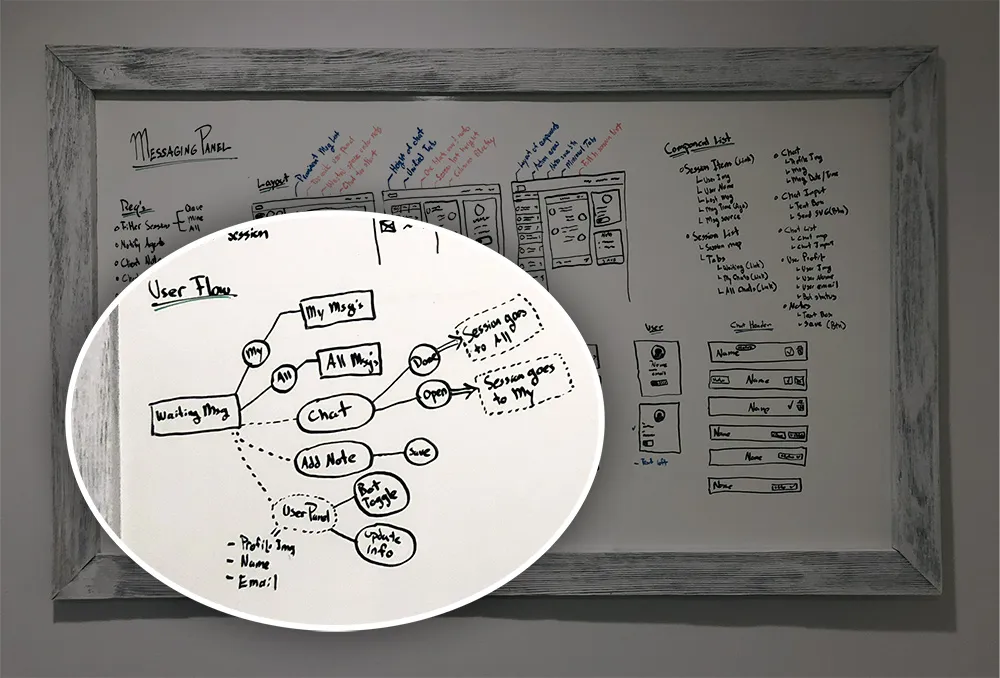 MESSAGING PANEL
Req's
Filter Session
Done
Mine
All
Notify Agents
Client
Layout
Height of chat
Component List
Session Items (Link)
User Img
User Name
Last Msg
Msg Time (Ago)
Msg Source
Session List
Session map
Tabs
Waiting (Link)
My Chats (Link)
All Chats (Link)
Chat
Profile Img
Msg
Msg Date/Time
Chat Input
Text Box
Send SVG (Btn)
Chat List
Chat map
Chat Input
User Profile
User Img
User Name
User email
Bot status
Notes
Text Box
Save (Btn)
User
Name
Text left
Chat Header
Name
Name
Name
Name
Name
Name
Session
User Flow
My Msg's
My
All
All Msg's
Waiting Msg
Chat
Done
Session goes
to All
Open
Session goes
to My
Add Note
Save
User Panel
Bot
Toggle
update
info
- Profile Img
- Name
- Email